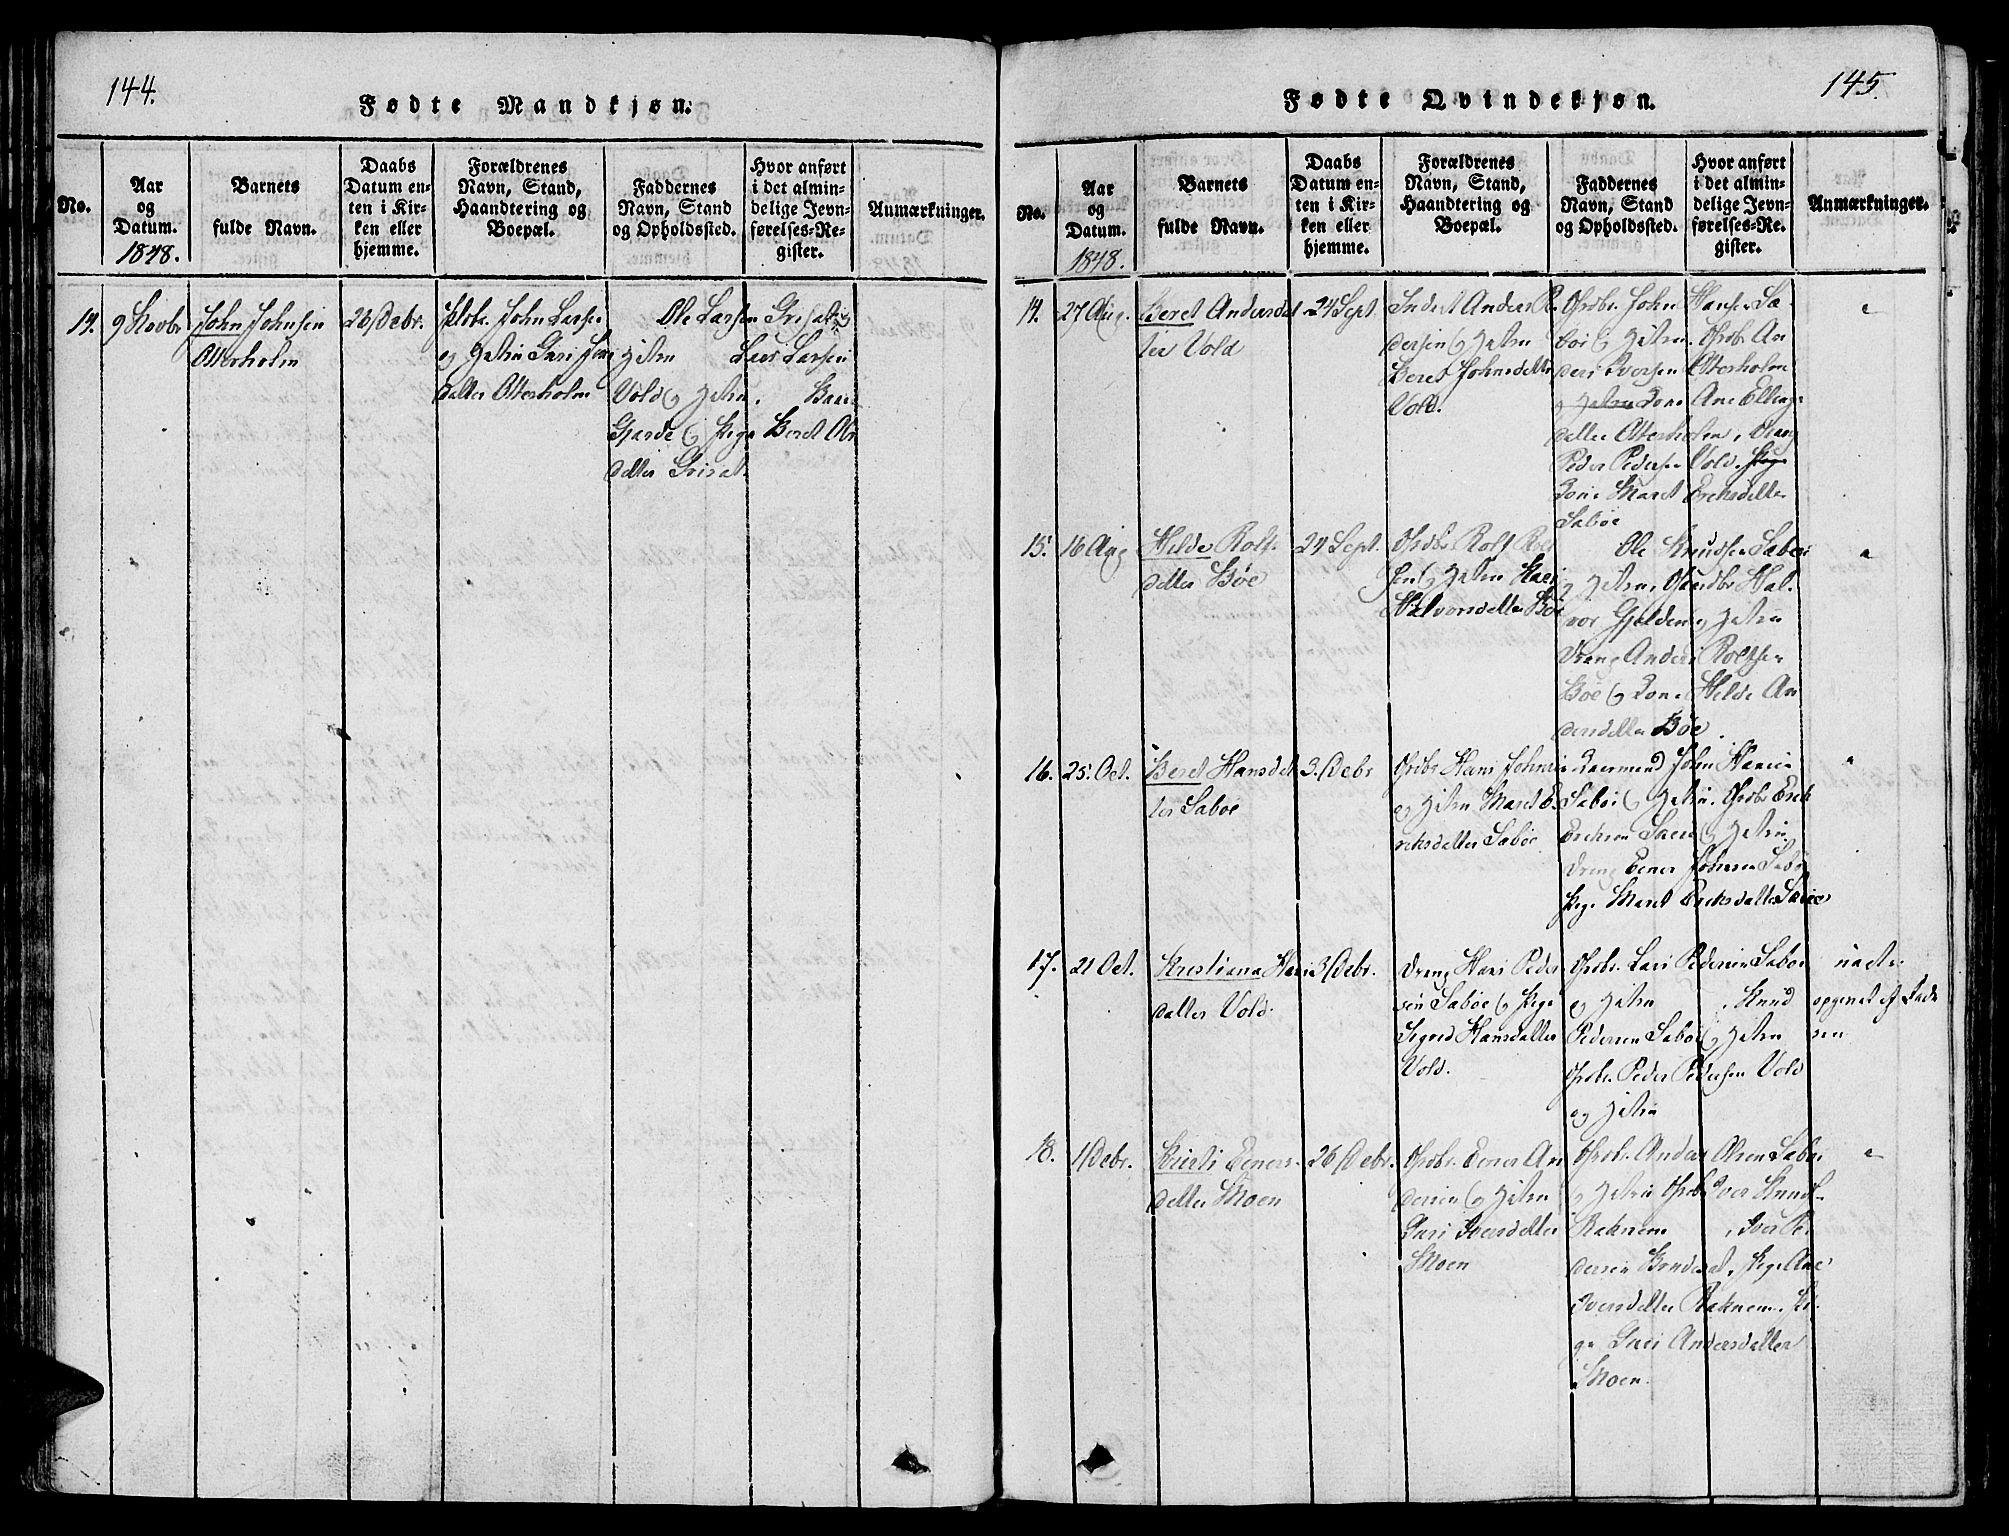 144.
Fødte Mandkjøn.
No.
Aar
og
Datum.
1848.
Barnets
fulde Navn.
Daabs
Datum en-
ten i Kir-
ken eller
hjemme.
Forældrenes
Navn, Stand,
Haandtering og
Boepæl.
Faddernes
Navn, Stand
og Opholdssted.
Hvor anført
i det almin-
delige Jevn-
førelses-Re-
gister.
Anmærkninger.
19. 9 Novbr John Johnsen
Otterholm
26 Debr.
John Larsen
og Hstru Guri
datter Otterholm
Ole Larsen
Hstru Lars Larsen
Vold og Hstru.
Gjerde og Pige Beret
datter
145.
Fødte Qvindekjøn.
No.
Aar
og
Datum.
1848.
Barnets
fulde Navn.
Daabs
Datum en-
ten i Kir-
ken eller
hjemme.
Forældrenes
Navn, Stand,
Haandtering og
Boepæl.
Faddernes
Navn, Stand
og Opholdssted.
Hvor anført
i det almin-
delige Jevn-
førelses-Re-
gister.
Anmærkninger.
14. 27 Aug. Beret Andersdat
ter Vold
24 Sept
Anders
dersen og Hstru
Beret Johnsdatter
Vold.
Grdbr. John Hansen Sa-
bøe og Hstru. Grdbr An
ders Iversen Otterholm
Ane Ellings
datter Otterholm, Dreng
Peder Pedersen Vold.
Kone Maret Eriksdatter
Sabøe
15. 16 Aug Hilde Rolfs-
datter Bøe
24 Sept.
Grdbr Rolf
sen og Hstru Kari
Halvorsdatter Bøe
Ole Knudsen Sabøe
og Hstru, Gaardbr Hal-
vor Gjelden og Hstru
Dreng Anders Rolfsen
Bøe og Kone Hilde An
dersdatter Bøe.
16. 25. Oct. Beret Hansdat
ter Sabøe
3. Debr
Grdbr Hans Johnsen
og Hstru Maret E-
riksdatter Sabøe
John Hansen
Sabøe og Hstru. Grdbr Erik
Eriksen og Hstru.
Dreng Eener Johnsen Sabøe
Pige Maret Eriksdatter Sabøe
17. 21 Oct. Kristiana Hans
datter Vold.
3 Debr.
Dreng Hans Peder
sen Sabøe og Pige
Sigrid Hansdatter
Vold.
Grdbr. Lars Pedersen Sabøe
og Hstru . Knud
Pedersen Sabøe og Hstru
Grdbr. Peder Pedersen Vold
og Hstru
uægte
opgivet af Fade
ren
18. 1 Debr. Kristi Eeners-
datter Moen
26 Debr.
Grdbr. Eener An
dersen og Hstru
Guri Iversdatter
Moen
Grdbr. Anders Olsen Sabøe
og Hstru Grdbr Iver Knuds
Raknem , Iver Pe-
dersen , Pige Ane
Iversdatter Raknem. Pi-
ge Guri Andersdatter
Moen.